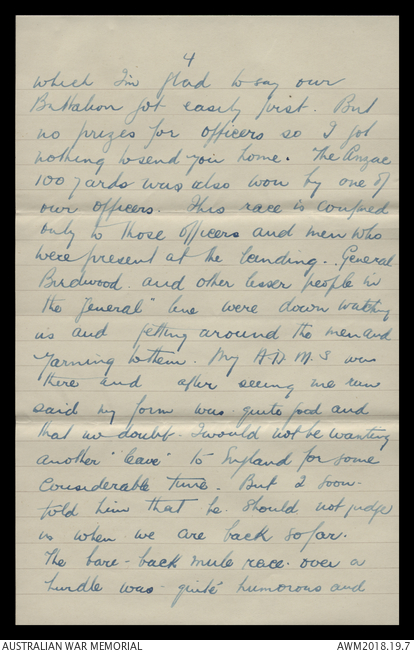 4
which I'm glad to say our
Battalion got easily first. But
no prizes for officers so I got
nothing to send you home. The Anzac
100 yards was also won by one of
our officers. This race is confined
only to those officers and men who
were present at the landing. General
Birdwood and other lesser people in
the "General" line were down watching
us and getting around the men and
yarning to them. My A D M S was
there and after seeing me run
said my form was quite good and
that no doubt I would not be wanting
another "leave" to England for some
considerable time. But I soon
told him that he should not judge
us when we are back so far.
The bare-back mule race over a
hurdle was quite humorous and
AUSTRALIAN WAR MEMORIAL
AWM2018.19.7